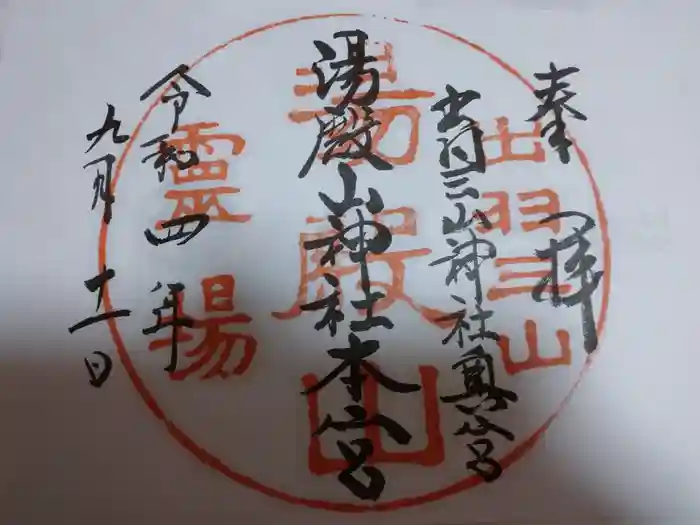 奉拝
出羽三山神社奥宮
湯殿山神社本宮
令和四年
九月十一日
出羽三山
湯殿山
靈場